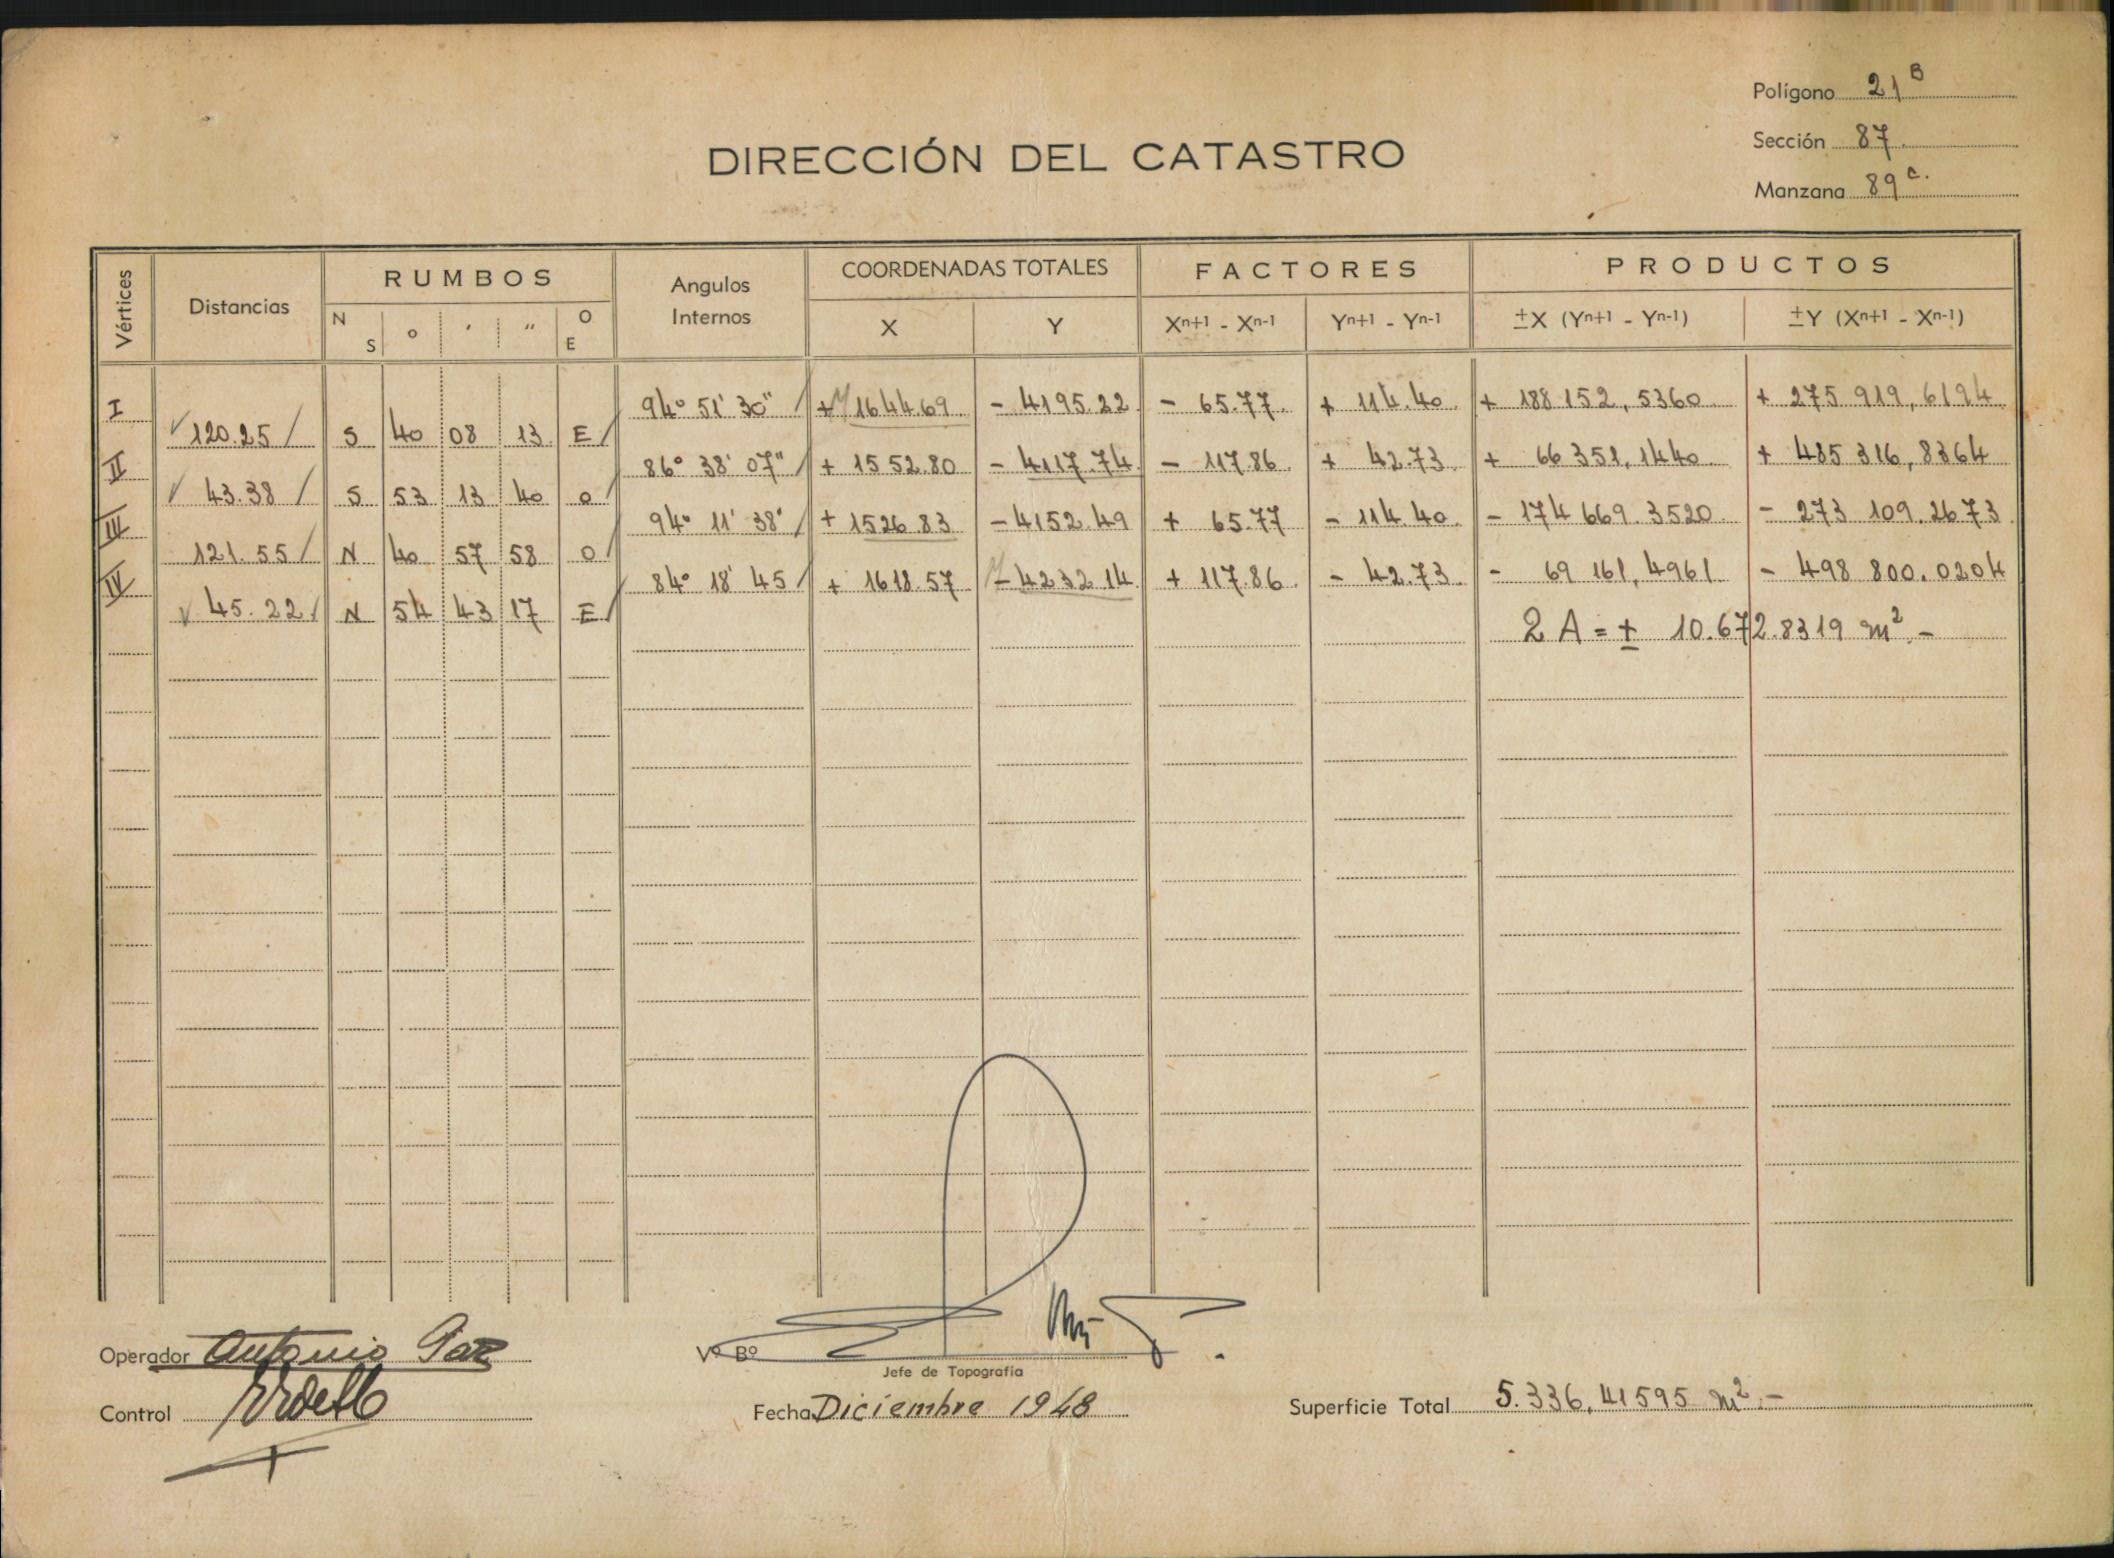 Polígono 21 B
Sección 87.
Manzana 89 c.
DIRECCIÓN DEL CATASTRO
Vértices Distancias RUMBOS Angulos Internos COORDENADAS TOTALES FACTORES PRODUCTOS
N S ° ' " O E X Y Xn+1 - Xn-1 Yn+1 - Yn-1 ±X (Yn+1 - Yn-1) ±Y (Xn+1 - Xn-1)
I 94° 51' 30" + 1644.69 - 4195.22 - 65.77. + 114.40 + 188 152, 5360 + 275 919, 6194
120.25 S 40 08 13 E
II 86° 38' 07" + 1552.80 - 4117.74 - 117.86 + 42.73 + 66 351, 1440 + 485 316, 8364
43.38 S 53 13 40 O
III 94° 11' 38" + 1526.83 - 4152.49 + 65.77 - 114.40 - 174 669. 3520 - 273 109. 2673
121.55 N 40 57 58 O
IV 84° 18' 45 + 1618.57 - 4232.14 + 117.86 - 42.73 - 69 161, 4961 - 498 800. 0204
45.22 N 54 43 17 E
2 A = ± 10.672.8319 m². -
Operador Antonio Paz
Vº Bº
Jefe de Topografía
Control
Fecha Diciembre 1948
Superficie Total 5.336, 41595 m². -